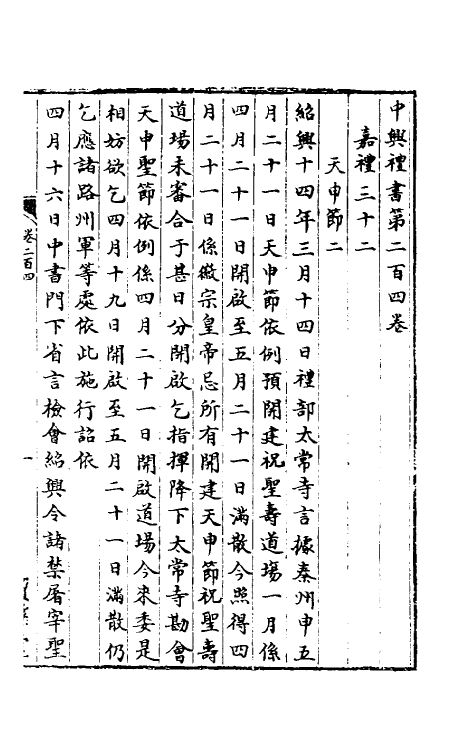 中興禮書第二百四卷
嘉禮三十二
天申節二
紹興十四年三月十四日禮部太常寺言據秦州申五
月二十一日天申節依例預開建祝聖壽道場一月係
四月二十一日開啟至五月二十一日滿散今照得四
月二十一日係徽宗皇帝忌所有開建天申節祝聖壽
道場未審合于甚日分開啟乞指揮降下太常寺勘會
天申聖節依例係四月二十一日開啟道場今來委是
相妨欲乞四月十九日開啟至五月二十一日滿散仍
乞應諸路州軍等處依此施行詔依
四月十六日中書門下省言檢會紹興令諸禁屠宰聖
卷二百四
一